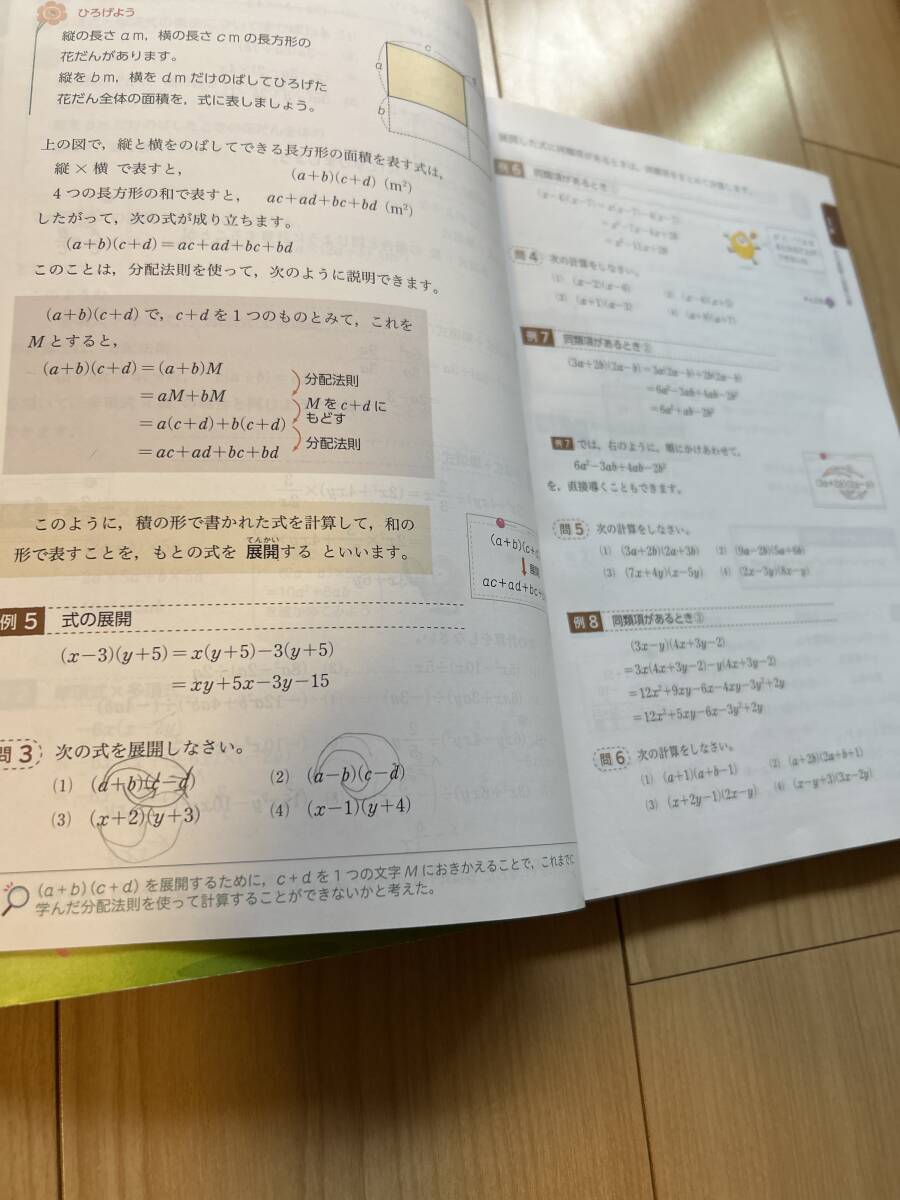 ひろげよう
縦の長さ a m，横の長さ c m の長方形の
花だんがあります。
縦を b m，横を d m だけのばしてひろげた
花だん全体の面積を，式に表しましょう。
c
a
b
上の図で，縦と横をのばしてできる長方形の面積を表す式は，
縦×横 で表すと， (a+b)(c+d) (m²)
4つの長方形の和で表すと， ac+ad+bc+bd (m²)
したがって，次の式が成り立ちます。
(a+b)(c+d)=ac+ad+bc+bd
このことは，分配法則を使って，次のように説明できます。
(a+b)(c+d)で，c+dを1つのものとみて，これを
Mとすると，
(a+b)(c+d)=(a+b)M
=aM+bM
=a(c+d)+b(c+d)
=ac+ad+bc+bd
分配法則
Mをc+dに
もどす
分配法則
このように，積の形で書かれた式を計算して，和の
形で表すことを，もとの式を 展開する といいます。
てんかい
(a+b)(c+
展開
ac+ad+bc+
例 5 式の展開
(x−3)(y+5)=x(y+5)−3(y+5)
=xy+5x−3y−15
問 3 次の式を展開しなさい。
(1) (a+b)(c−d) (2) (a−b)(c−d)
(3) (x+2)(y+3) (4) (x−1)(y+4)
(a+b)(c+d)を展開するために，c+dを1つの文字Mにおきかえることで，これまでに
学んだ分配法則を使って計算することができないかと考えた。
展開した式に同類項があるときは，同類項をまとめて計算します。
例 6 同類項があるとき①
(x−4)(x−7)=x(x−7)−4(x−7)
=x²−7x−4x+28
=x²−11x+28
問 4 次の計算をしなさい。
(1) (x−2)(x−6)
(3) (x+1)(x−3)
例 7 同類項があるとき②
(3a+2b)(2a−b)=3a(2a−b)+2b(2a−b)
=6a²−3ab+4ab−2b²
=6a²+ab−2b²
例7 では，右のように，順にかけあわせて，
6a²−3ab+4ab−2b²
を，直接導くこともできます。
(3a+2b)(2a−b)
問 5 次の計算をしなさい。
(1) (3a+2b)(2a+3b) (2) (9a−2b)(5a+6b)
(3) (7x+4y)(x−5y) (4) (2x−3y)(8x−y)
例 8 同類項があるとき③
(3x−y)(4x+3y−2)
=3x(4x+3y−2)−y(4x+3y−2)
=12x²+9xy−6x−4xy−3y²+2y
=12x²+5xy−6x−3y²+2y
問 6 次の計算をしなさい。
(1) (a+1)(a+b−1) (2) (a+2b)(2a+b+1)
(3) (x+2y−1)(2x−y) (4) (x−y+3)(3x−2y)